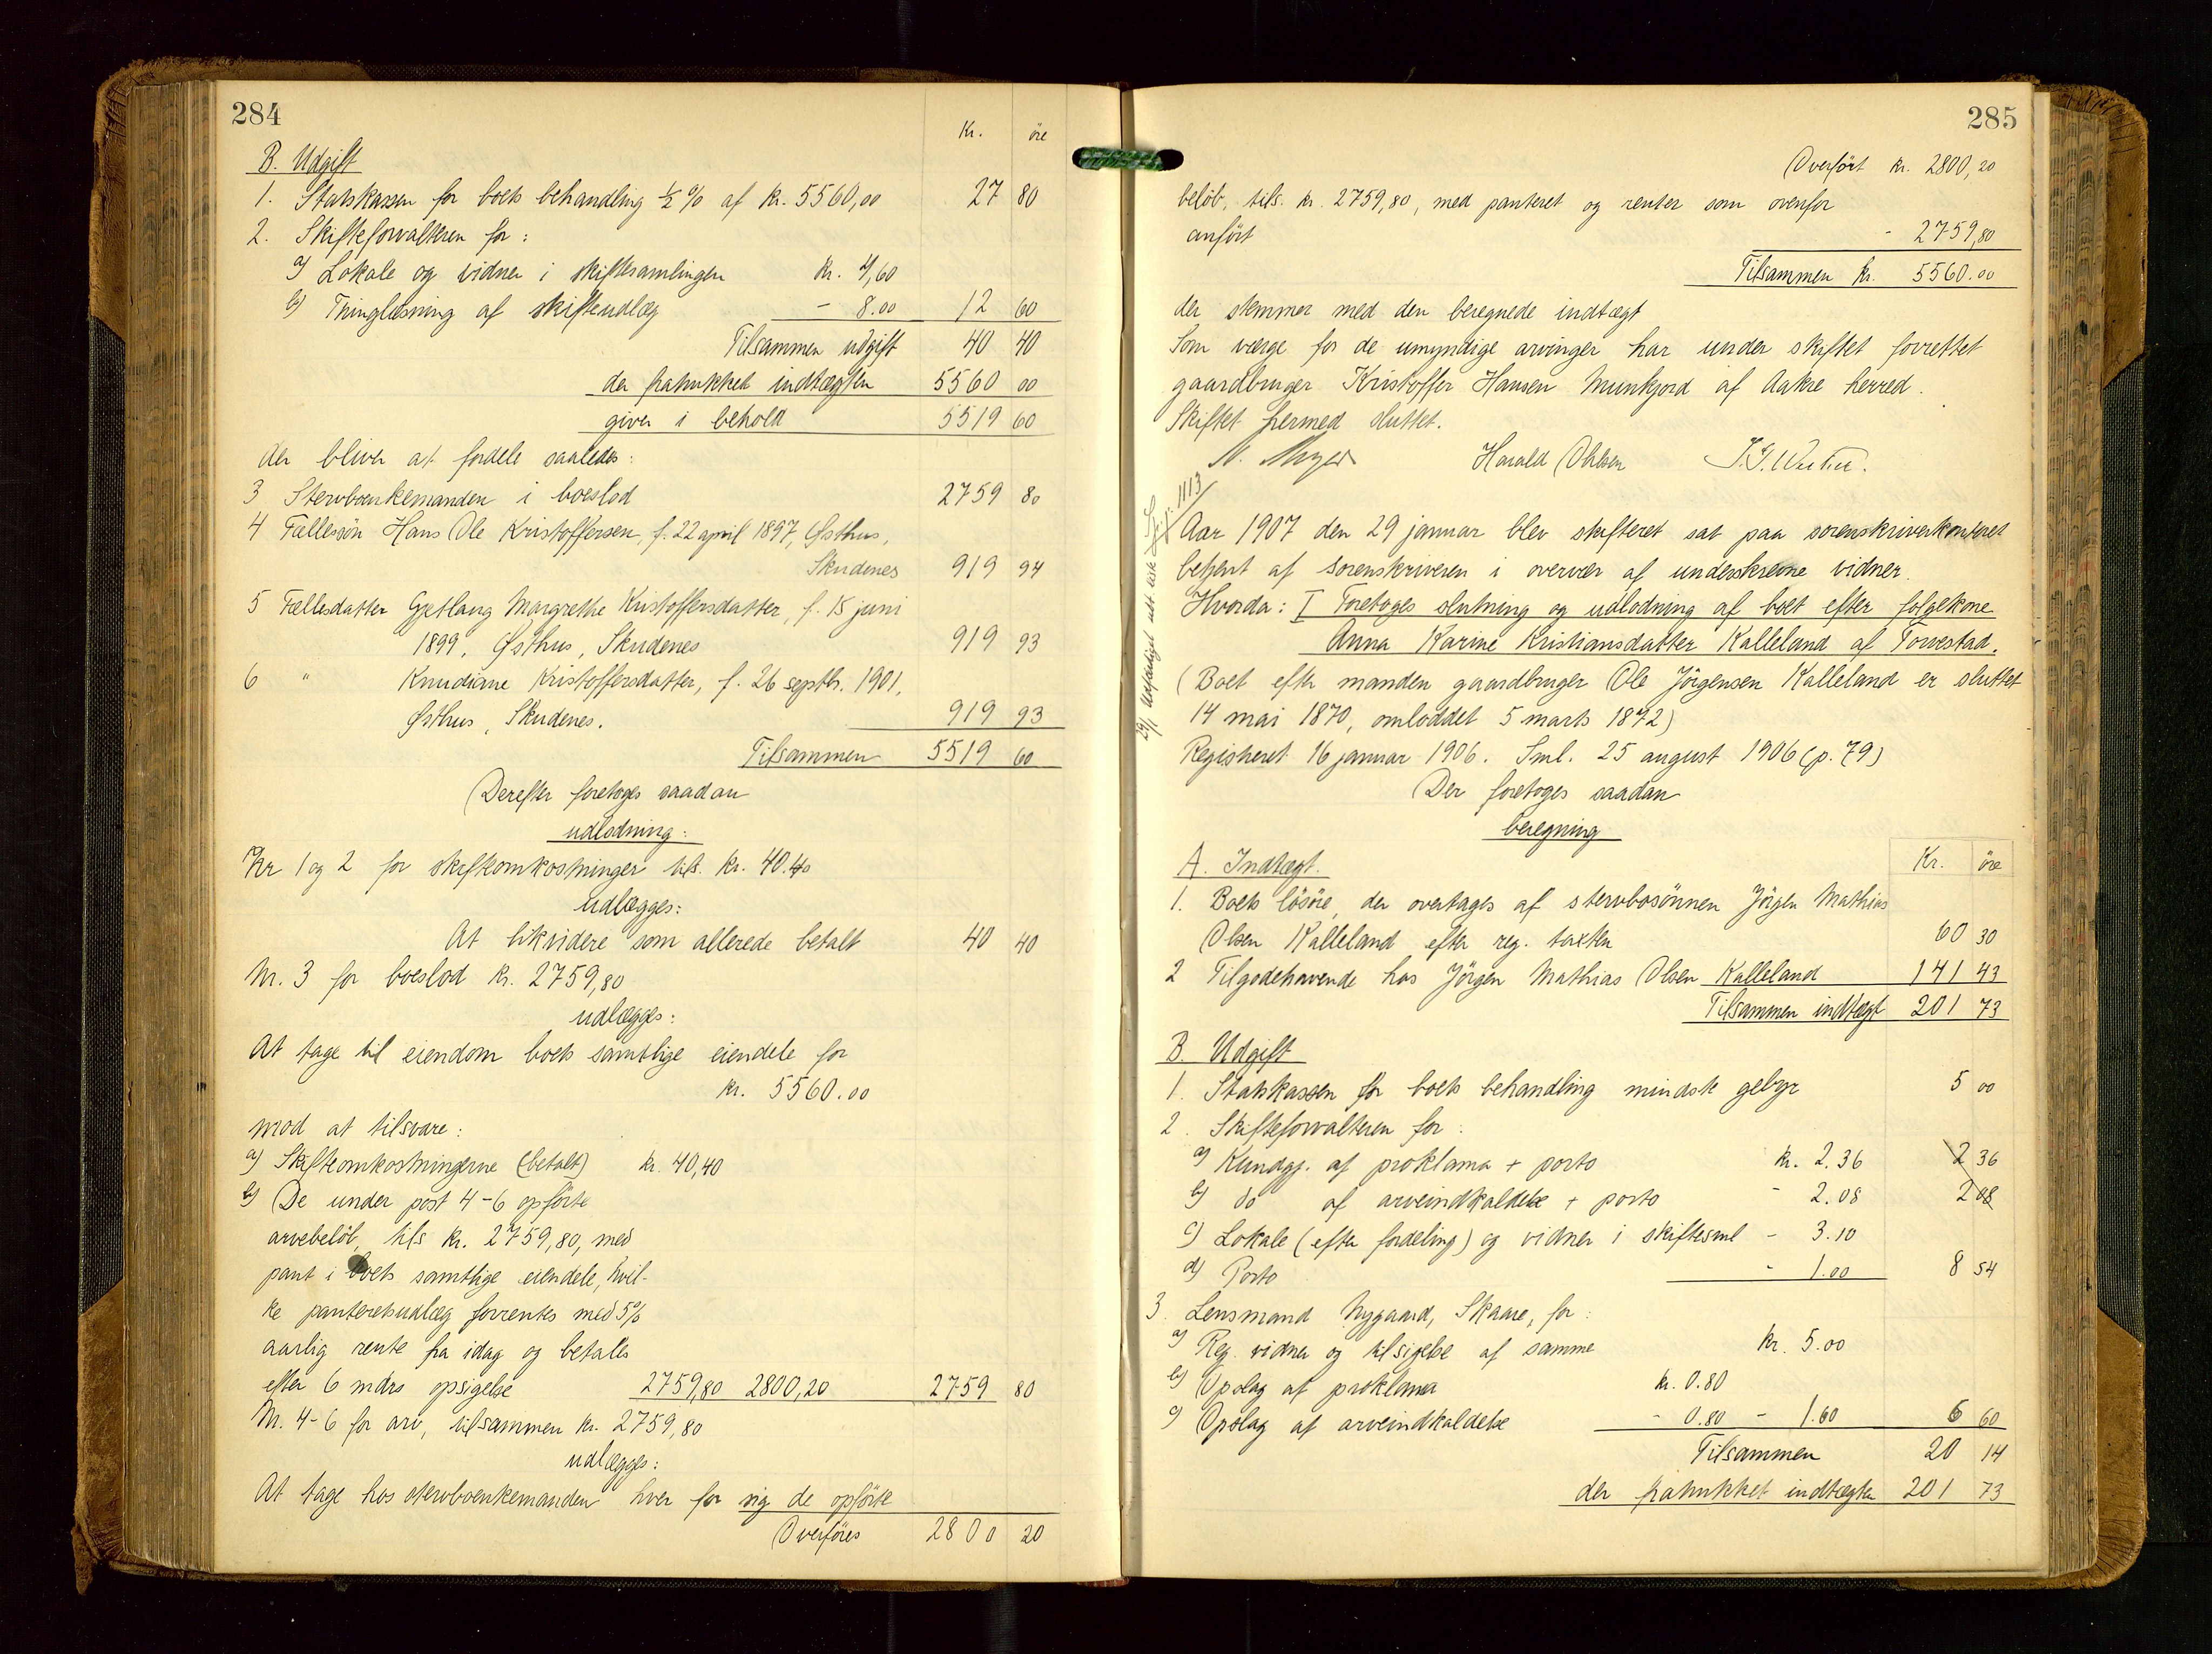 284
Kr. öre
B. Udgift
1. Statskassen for boets behandling ½ % af kr. 5560,00 27 80
2. Skifteforvalteren for:
a) Lokale og vidner i skiftesamlingen kr. 4,60
b) Thinglæsning af skifteudlæg - 8.00 12 60
Tilsammen udgift 40 40
der fratrukket indtægten 5560 00
giver i behold 5519 60
der bliver at fordele saaledes:
3 Stervboenkemanden i boeslod 2759 80
4 Fællessön Hans Ole Kristoffersen, f. 22 april 1897, Østhus,
Skudenes 919 94
5 Fællesdatter Gjetlaug Margrethe Kristoffersdatter, f. 15 juni
1899, Østhus, Skudenes 919 93
6 " Knudiane Kristoffersdatter, f. 26 septbr. 1901,
Østhus, Skudenes. 919 93
Tilsammen 5519 60
Derefter foretoges saadan
udlodning:
Nr 1 og 2 for skifteomkostninger tils. kr. 40.40
udlægges:
At likvidere som allerede betalt 40 40
Nr. 3 for boeslod kr. 2759,80
udlægges:
At tage til eiendom boets samtlige eiendele for
kr. 5560.00
mod at tilsvare:
a) Skifteomkostningerne (betalt) kr. 40,40
b) De under post 4-6 opförte
arvebelöb, tils kr. 2759,80, med
pant i boets samtlige eiendele, hvil-
ke panteretsudlæg forrentes med 5%
aarlig rente fra idag og betales
efter 6 mdrs opsigelse 2759,80 2800,20 2759 80
Nr. 4-6 for arv, tilsammen kr. 2759,80
udlægges:
At tage hos stervboenkemanden hver for sig de opförte
Overföres 2800 20
285
Overfört kr. 2800,20
belöb, tils. kr. 2759,80, med panteret og renter som ovenfor
anfört - 2759,80
Tilsammen kr. 5560.00
der stemmer med den beregnede indtægt
Som værge for de umyndige arvinger har under skiftet forrettet
gaardbruger Kristoffer Hansen Munkjord af Aakre herred.
Skiftet hermed sluttet.
Harald Ohlsen
1113
Aar 1907 den 29 januar blev skifteret sat paa sorenskriverkontoret
betjent af sorenskriveren i overvær af underskrevne vidner.
Hvorda: I Foretoges slutning og udlodning af boet efter folgekone
Anna Karine Kristiansdatter Kalleland af Torvestad.
(Boet efter manden gaardbruger Ole Jörgensen Kalleland er sluttet
14 mai 1870, omloddet 5 marts 1872)
Registreret 16 januar 1906. Sml. 25 august 1906 (p. 79)
Der foretoges saadan
beregning
Kr. öre
A. Indtægt.
1. Boets lösöre, der overtages af stervbosönnen Jörgen Mathias
Olsen Kalleland efter reg. taxten 60 30
2 Tilgodehavende hos Jörgen Mathias Olsen Kalleland 141 43
Tilsammen indtægt 201 73
B. Udgift
1. Statskassen for boets behandling mindste gebyr 5 00
2. Skifteforvalteren for:
a) Kundgj. af proklama + porto kr. 2.36 2 36
b) do af arveindkaldelse + porto - 2.08 2 08
c) Lokale (efter fordeling) og vidner i skiftesml - 3.10
d) Porto - 1.00 8 54
3. Lensmand Nygaard, Skaare, for:
a) Reg. vidner og tilsigelse af samme kr. 5.00
b) Opslag af proklama kr. 0.80
c) Opslag af arveindkaldelse - 0.80 - 1.60 6 60
Tilsammen 20 14
der fratrukket indtægten 201 73